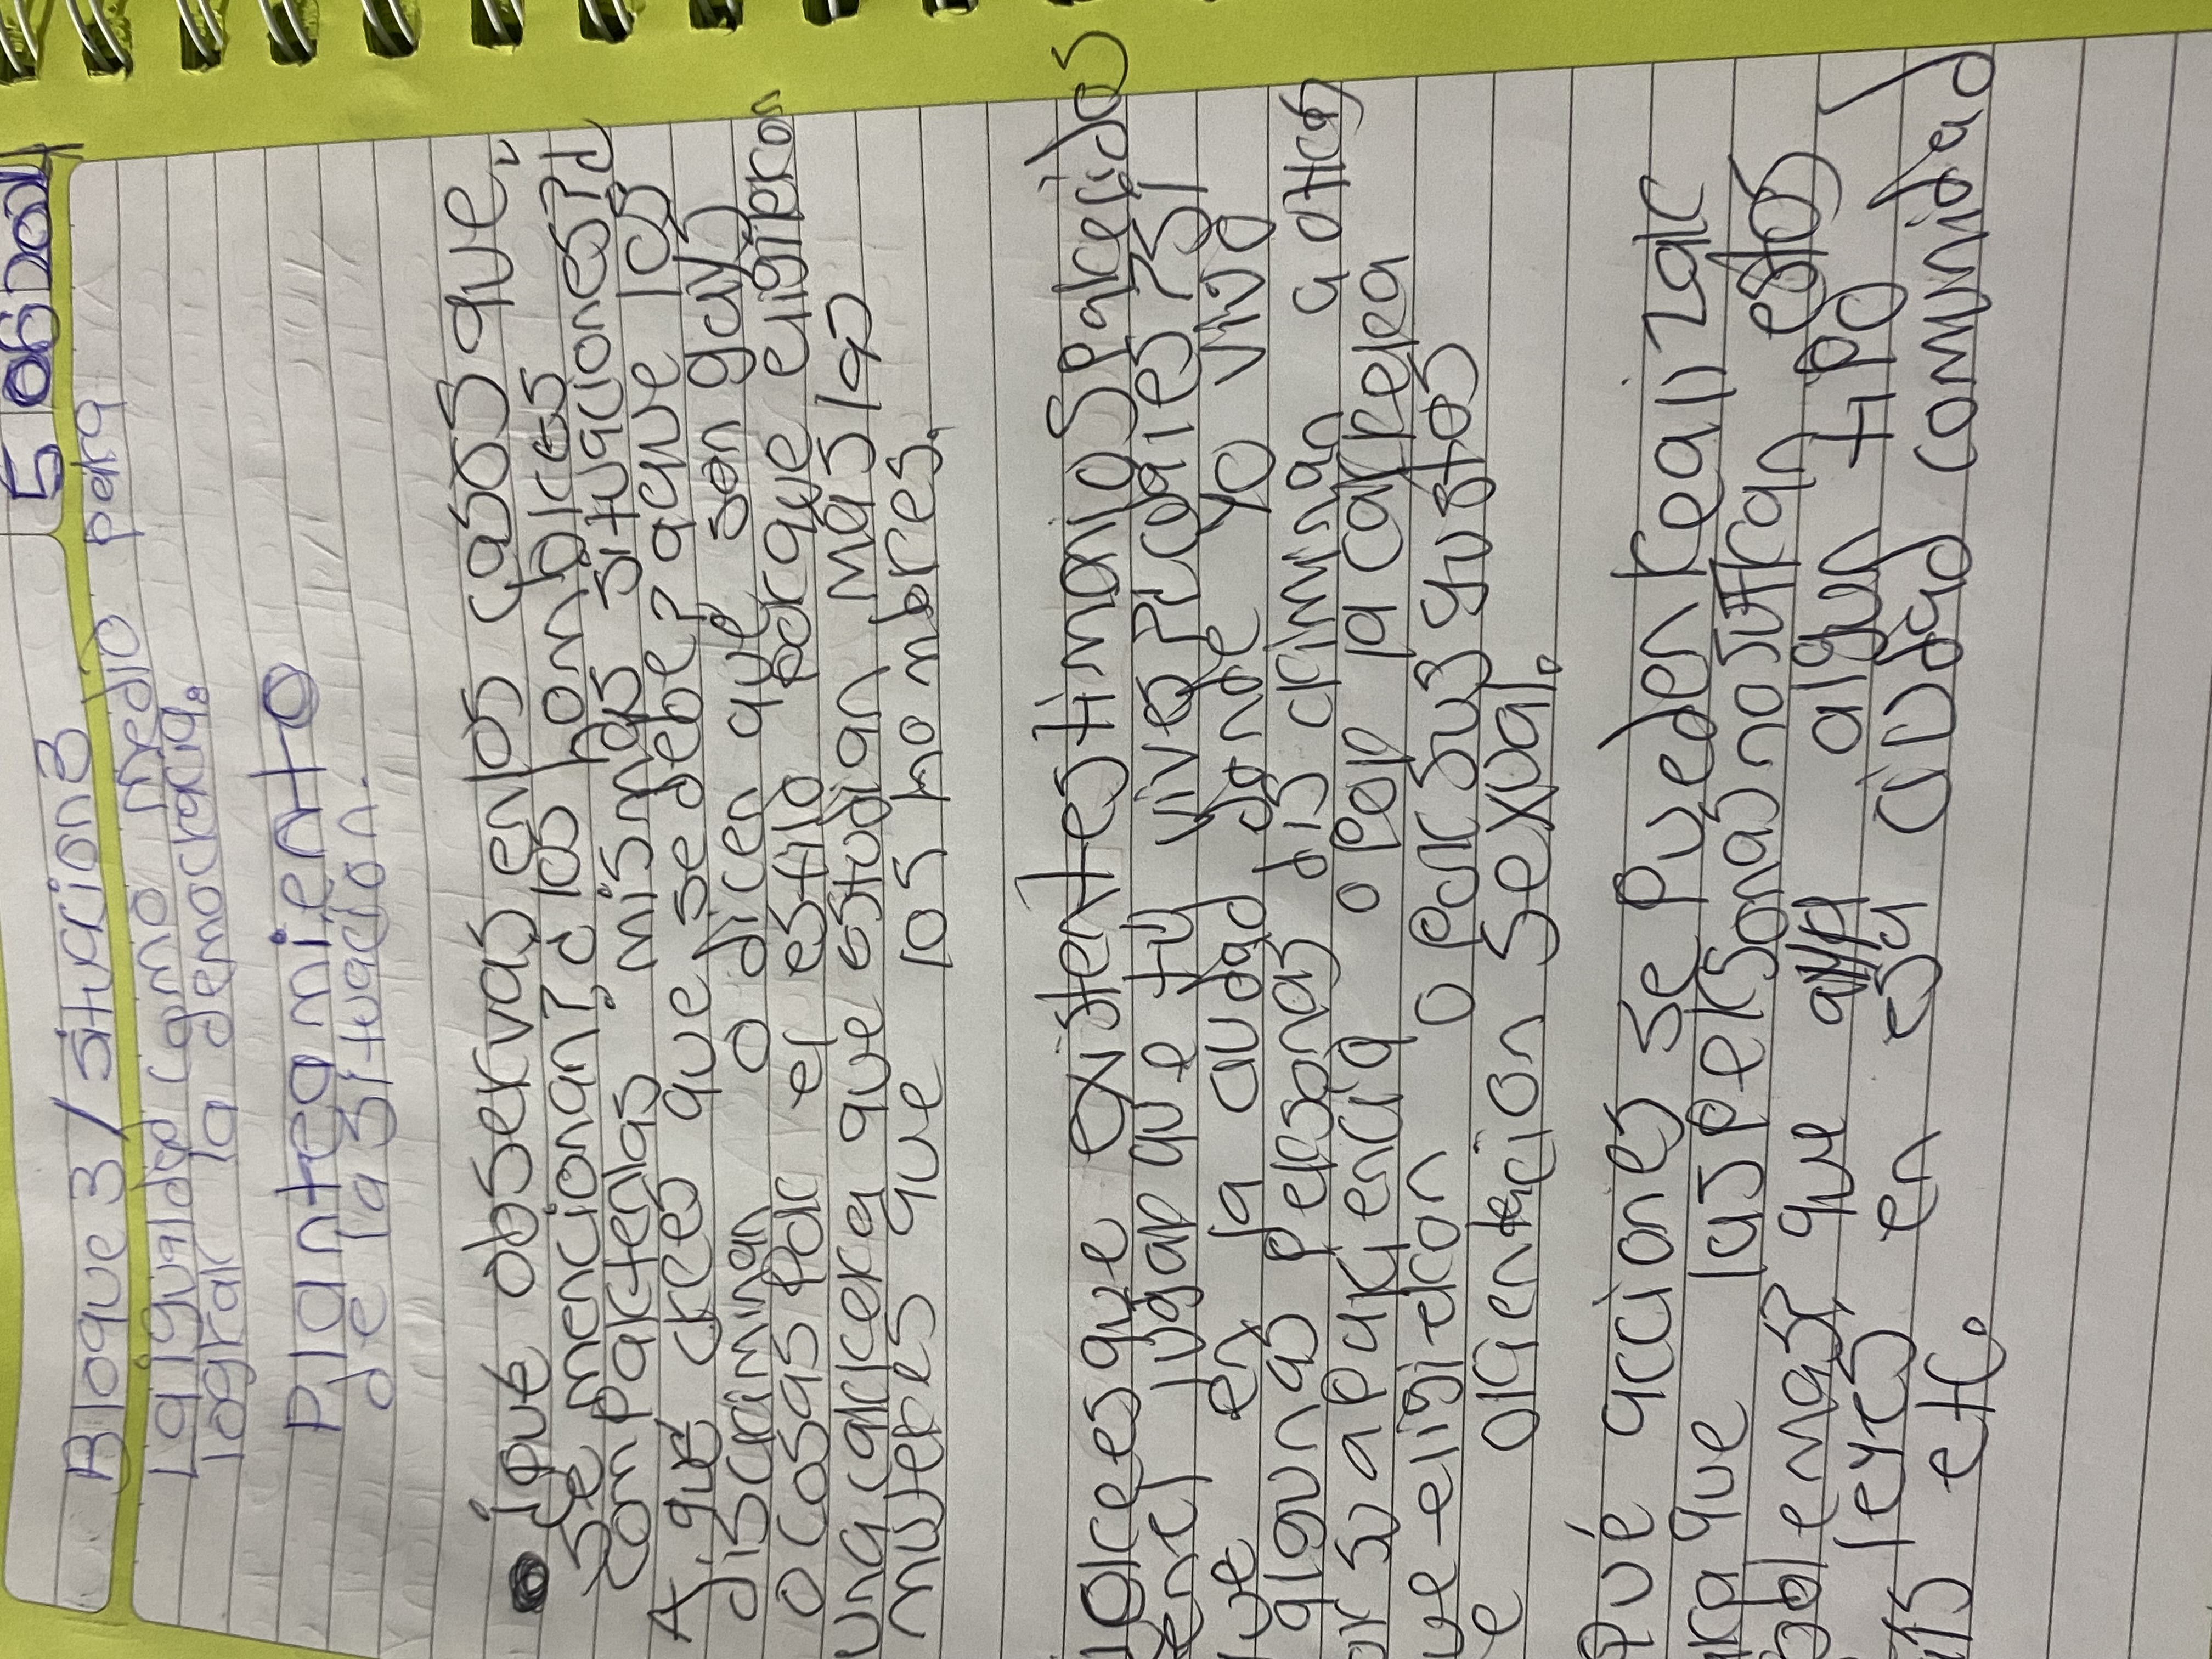 5 06 2024
Bloque 3 / situacion 3
La igualdad como medio para
lograr la democracia.
Planteamiento
de la situacion.
¿que observas en los casos que
se mencionan? ¿ los hombres
comparten las mismas situaciones?
A que crees que se debe? aque los
discriminan o dicen que son gays
o cosas por el estilo porque eligieron
una carrera que estudian mas las
mujeres que los hombres.
existentes timonios parecidos
en el lugar que tu vives? ¿cuales? si
que en la ciudad donde yo vivo
algunas personas discriminan a otras
por su apariencia o por la carrera
que eligieron o por sus gustos
orientacion sexual.
que acciones se pueden realizar
para que las personas no sufran estos
problemas? que alla algun tipo
leyes en esa ciudad comunidad
etc.